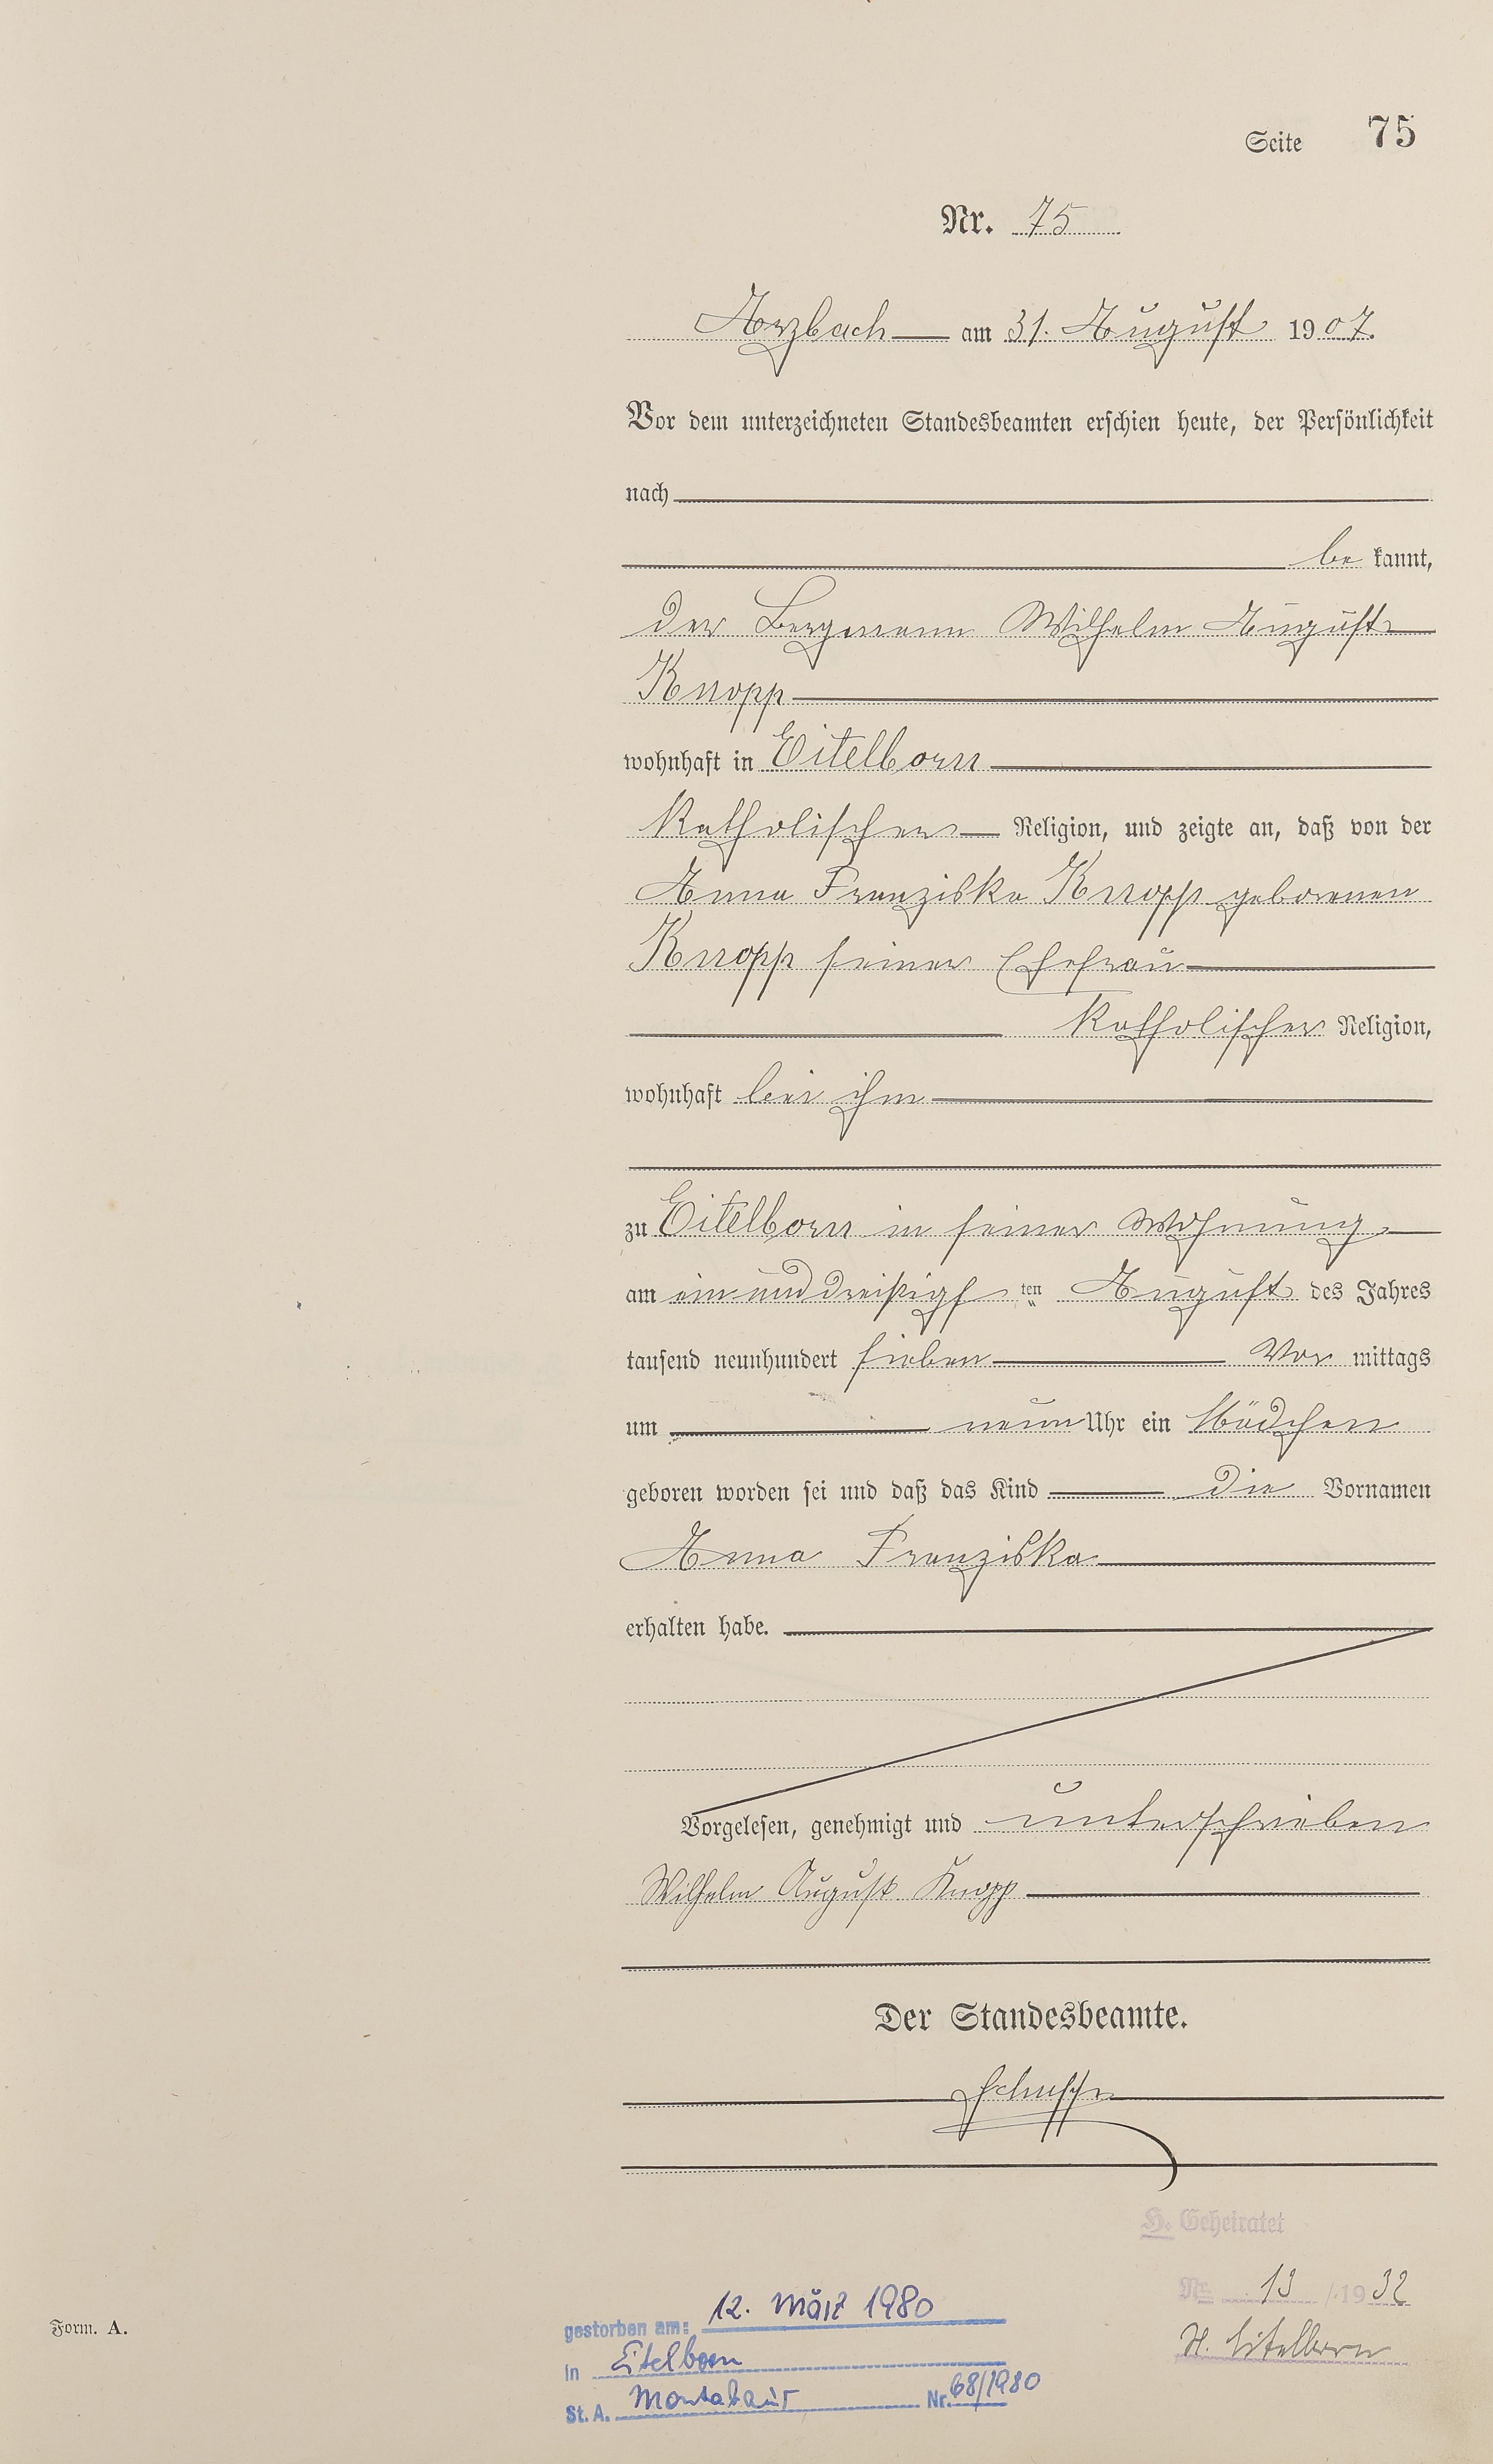 Seite 75
Nr. 75
Arzbach am 31. August 1907.
Vor dem unterzeichneten Standesbeamten erschien heute, der Persönlichkeit
nach
be kannt,
der Bergmann Wilhelm August
Knopp
wohnhaft in Eitelborn
katholischer Religion, und zeigte an, daß von der
Anna Franziska Knopp geborenen
Knopp seiner Ehefrau
katholischer Religion,
wohnhaft bei ihm
zu Eitelborn in seiner Wohnung
am ein und dreißigs ten August des Jahres
tausend neunhundert sieben Vor mittags
um neun Uhr ein Mädchen
geboren worden sei und daß das Kind die Vornamen
Anna Franziska
erhalten habe.
Vorgelesen, genehmigt und unterschrieben
Wilhelm August Knopp
Der Standesbeamte.
H. Geheiratet
Nr. 13 / 1932
St. Eitelborn
gestorben am: 12. März 1980
in Eitelborn
St. A. Montabaur Nr. 68/1980
Form. A.